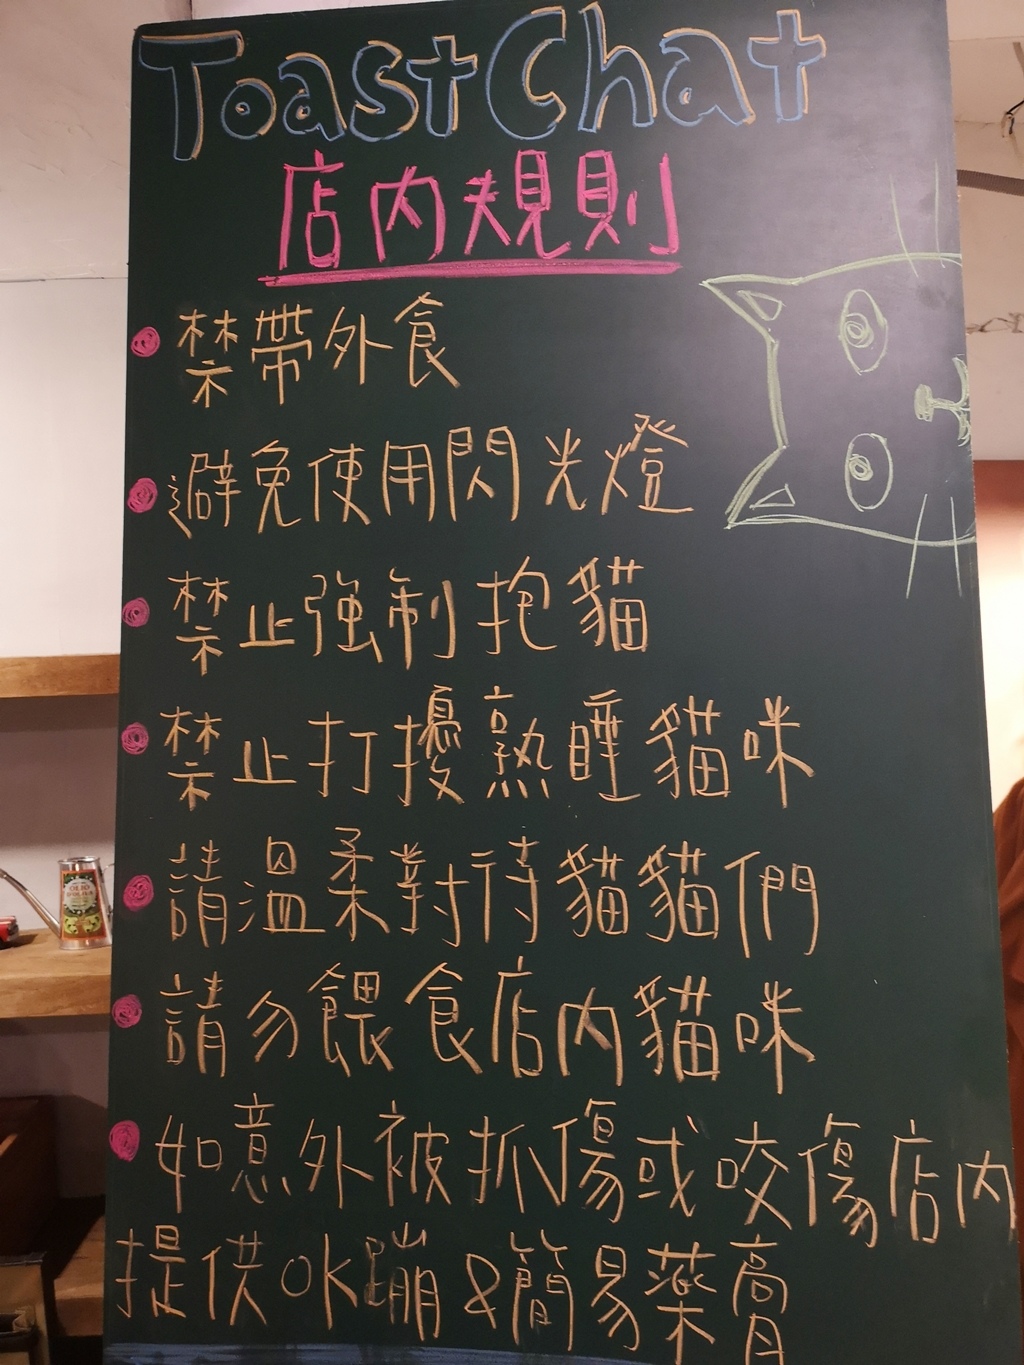 ToastChat
店內規則
禁帶外食
避免使用閃光燈
禁止強制抱貓
禁止打擾熟睡貓咪
請溫柔對待貓貓們
請勿餵食店內貓咪
如意外被抓傷或咬傷店內
提供OK蹦&簡易藥膏
OLIO